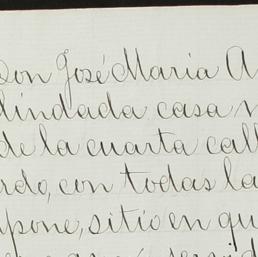 Don José Maria A
lindada casa n
de la cuarta call
rdo, con todas la
pone, sitio en qu